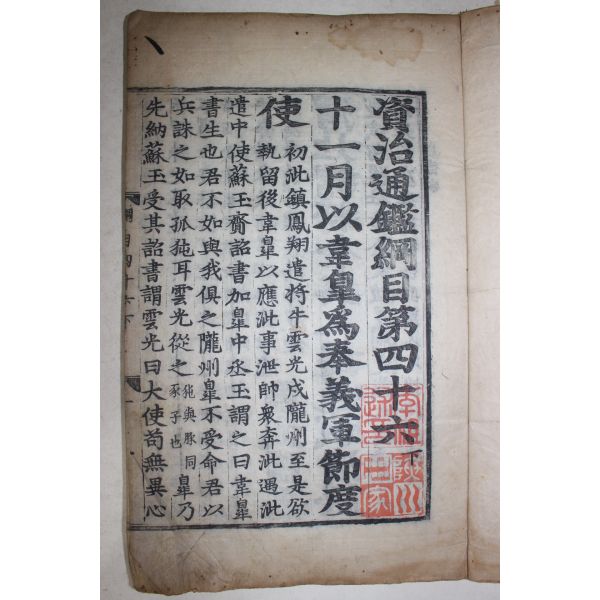 資治通鑑綱目第四十六下
十一月以韋皐爲奉義軍節度
使
初泚鎭鳳翔遣將牛雲光戍隴州至是欲
執留後韋皐以應泚事泄帥衆奔泚遇泚
遣中使蘇玉齎詔書加皐中丞玉謂之曰韋皐
書生也君不如與我俱之隴州皐不受命君以
兵誅之如取孤㹠耳雲光從之㹠與豚同豕子也皐乃
先納蘇玉受其詔書謂雲光曰大使苟無異心
綱目四十六下
一